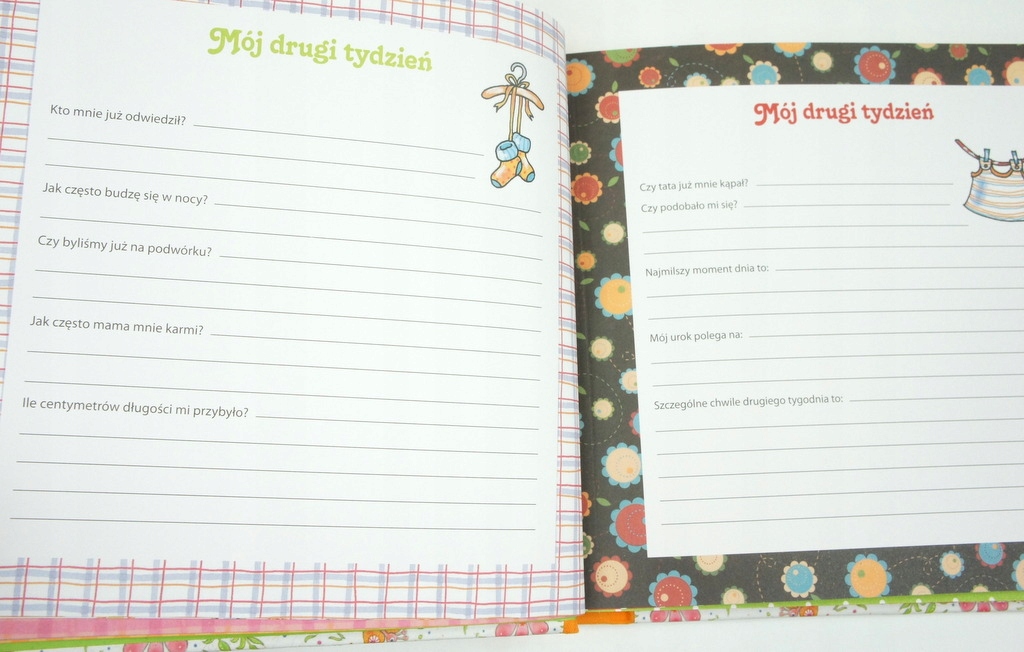 Mój drugi tydzień
Kto mnie już odwiedził?
Jak często budzę się w nocy?
Czy byliśmy już na podwórku?
Jak często mama mnie karmi?
Ile centymetrów długości mi przybyło?
Mój drugi tydzień
Czy tata już mnie kąpał?
Czy podobało mi się?
Najmilszy moment dnia to:
Mój urok polega na:
Szczególne chwile drugiego tygodnia to: